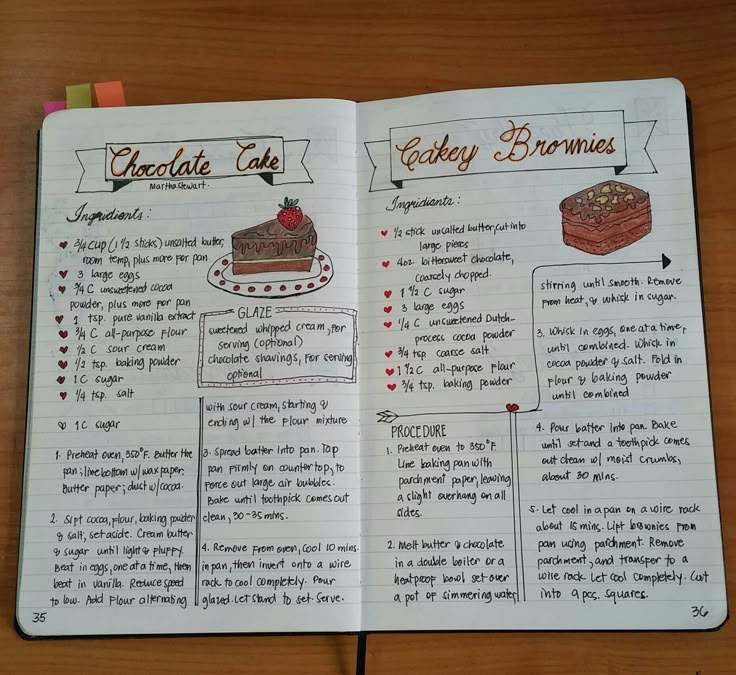 Chocolate Cake
Martha Stewart.
Ingredients :
3/4 cup (1 1/2 sticks) unsalted butter,
room temp, plus more for pan
3 large eggs
3/4 C unsweetened cocoa
powder, plus more for pan
1 tsp. pure vanilla extract
3/4 C all-purpose flour
1/2 C sour cream
1/2 tsp. baking powder
1 C sugar
1/4 tsp. salt
1C sugar
GLAZE
sweetened whipped cream, for
serving (optional)
chocolate shavings, for serving
optional
1. Preheat oven, 350°F. Butter the
pan; line bottom w/ wax paper.
Butter paper; dust w/ cocoa.
2. Sift cocoa, flour, baking powder
& salt, set aside. Cream butter
& sugar until light & fluffy.
Beat in eggs, one at a time, then
beat in vanilla. Reduce speed
to low. Add flour alternating
with sour cream, starting &
ending w/ the flour mixture
3. Spread batter into pan. Tap
pan firmly on countertop, to
force out large air bubbles.
Bake until toothpick comes out
clean, 30-35 mins.
4. Remove from oven, cool 10 mins.
in pan, then invert onto a wire
rack to cool completely. Pour
glazed. Let stand to set. Serve.
35
Cakey Brownies
Ingredients :
1/2 stick unsalted butter, cut into
large pieces
4oz bittersweet chocolate,
coarsely chopped.
1 1/2 C sugar
3 large eggs
1/4 C unsweetened Dutch-
process cocoa powder
3/4 tsp coarse salt
1 1/2 C all-purpose flour
3/4 tsp. baking powder
PROCEDURE
1. Preheat oven to 350°F.
Line baking pan with
parchment paper, leaving
a slight overhang on all
sides.
2. Melt butter & chocolate
in a double boiler or a
heatproof bowl set over
a pot of simmering water,
stirring until smooth. Remove
from heat, & whisk in sugar.
3. Whisk in eggs, one at a time,
until combined. Whisk in
cocoa powder & salt. Fold in
flour & baking powder
until combined
4. Pour batter into pan. Bake
until set and a toothpick comes
out clean w/ moist crumbs,
about 30 mins.
5. Let cool in a pan on a wire rock
about 15 mins. Lift brownies from
pan using parchment. Remove
parchment, and transfer to a
wire rack let cool completely. Cut
into 9 pcs. squares.
36